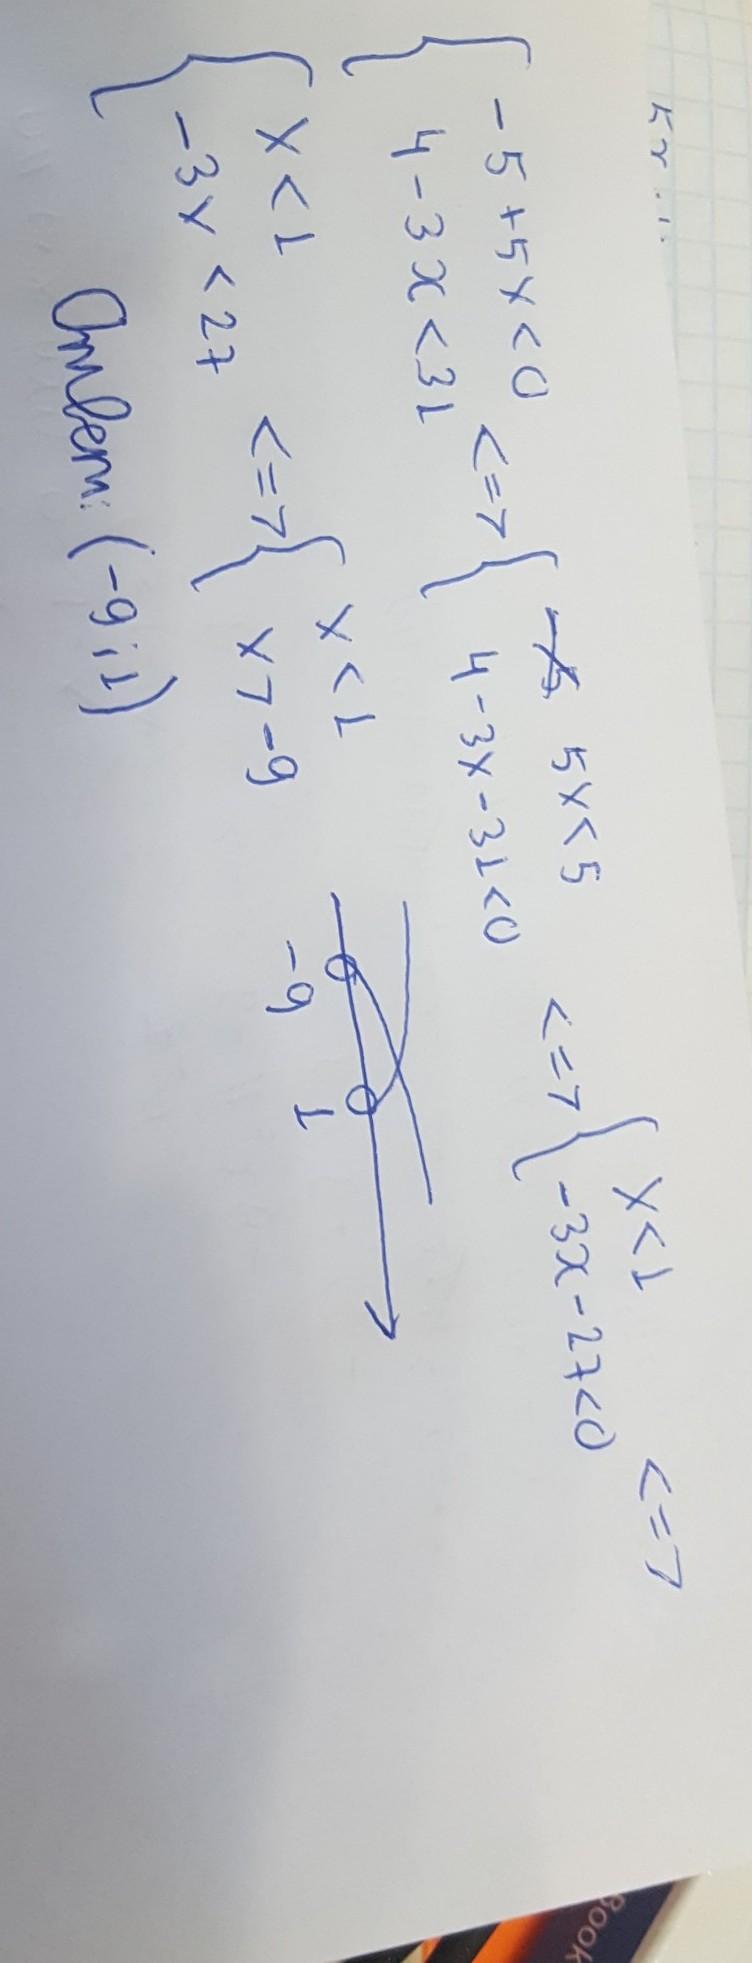 { -5+5x<0
4-3x<31 <=> { 5x<5
4-3x-31<0 <=> { x<1
-3x-27<0 <=>
{ x<1
-3x<27 <=> { x<1
x>-9
-9 1
Ответ: (-9;1)
Book